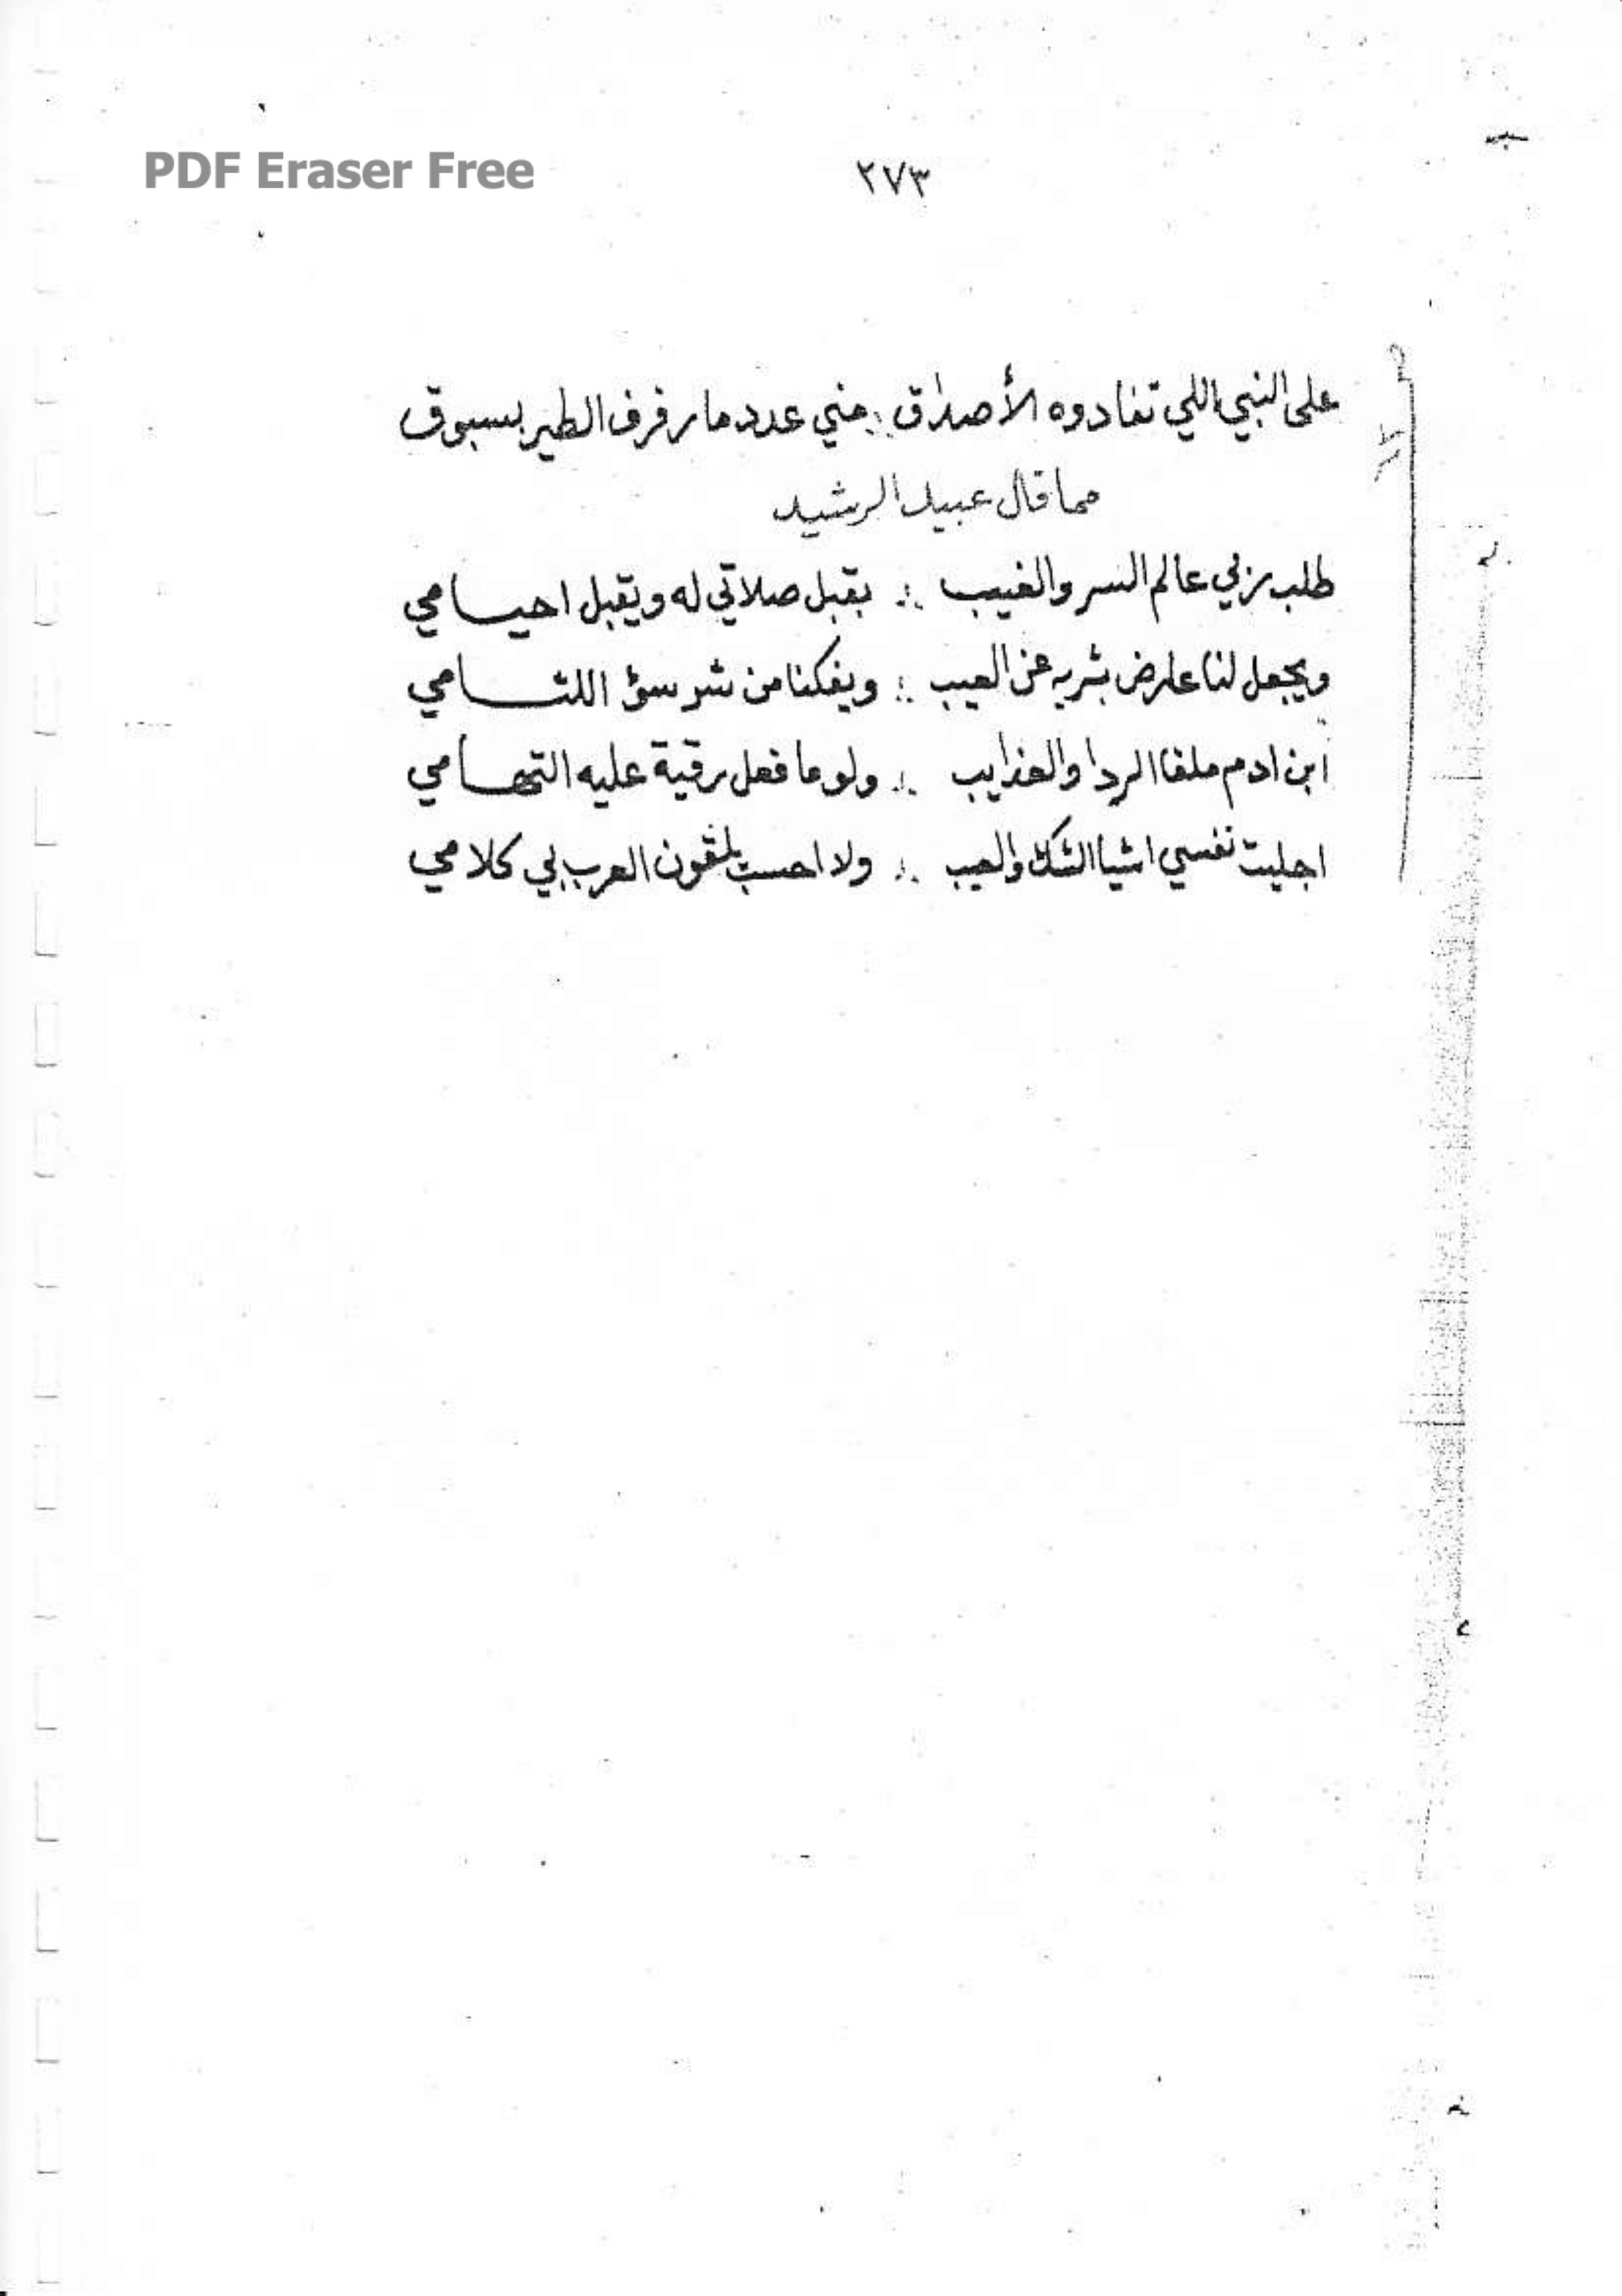 PDF Eraser Free
٢٧٣
على النبي اللي تفادوه الأصداق ∴ مني عدد ما رفرف الطير بسبوق
مما قال عبيد الرشيد
طلب ربي عالم السر والغيب ∴ يقبل صلاتي له ويقبل احيسامي
ويجعل لنا عارض بشربه عن العيب ∴ ويفكنا من شر سؤ اللتسامي
ابن ادم ملفا الردا والعذايب ∴ ولو ما فعل رقية عليه التهسامي
اجليت نفسي اشيا الشك والعيب ∴ ولا احسب يلقون العرب لي كلامي